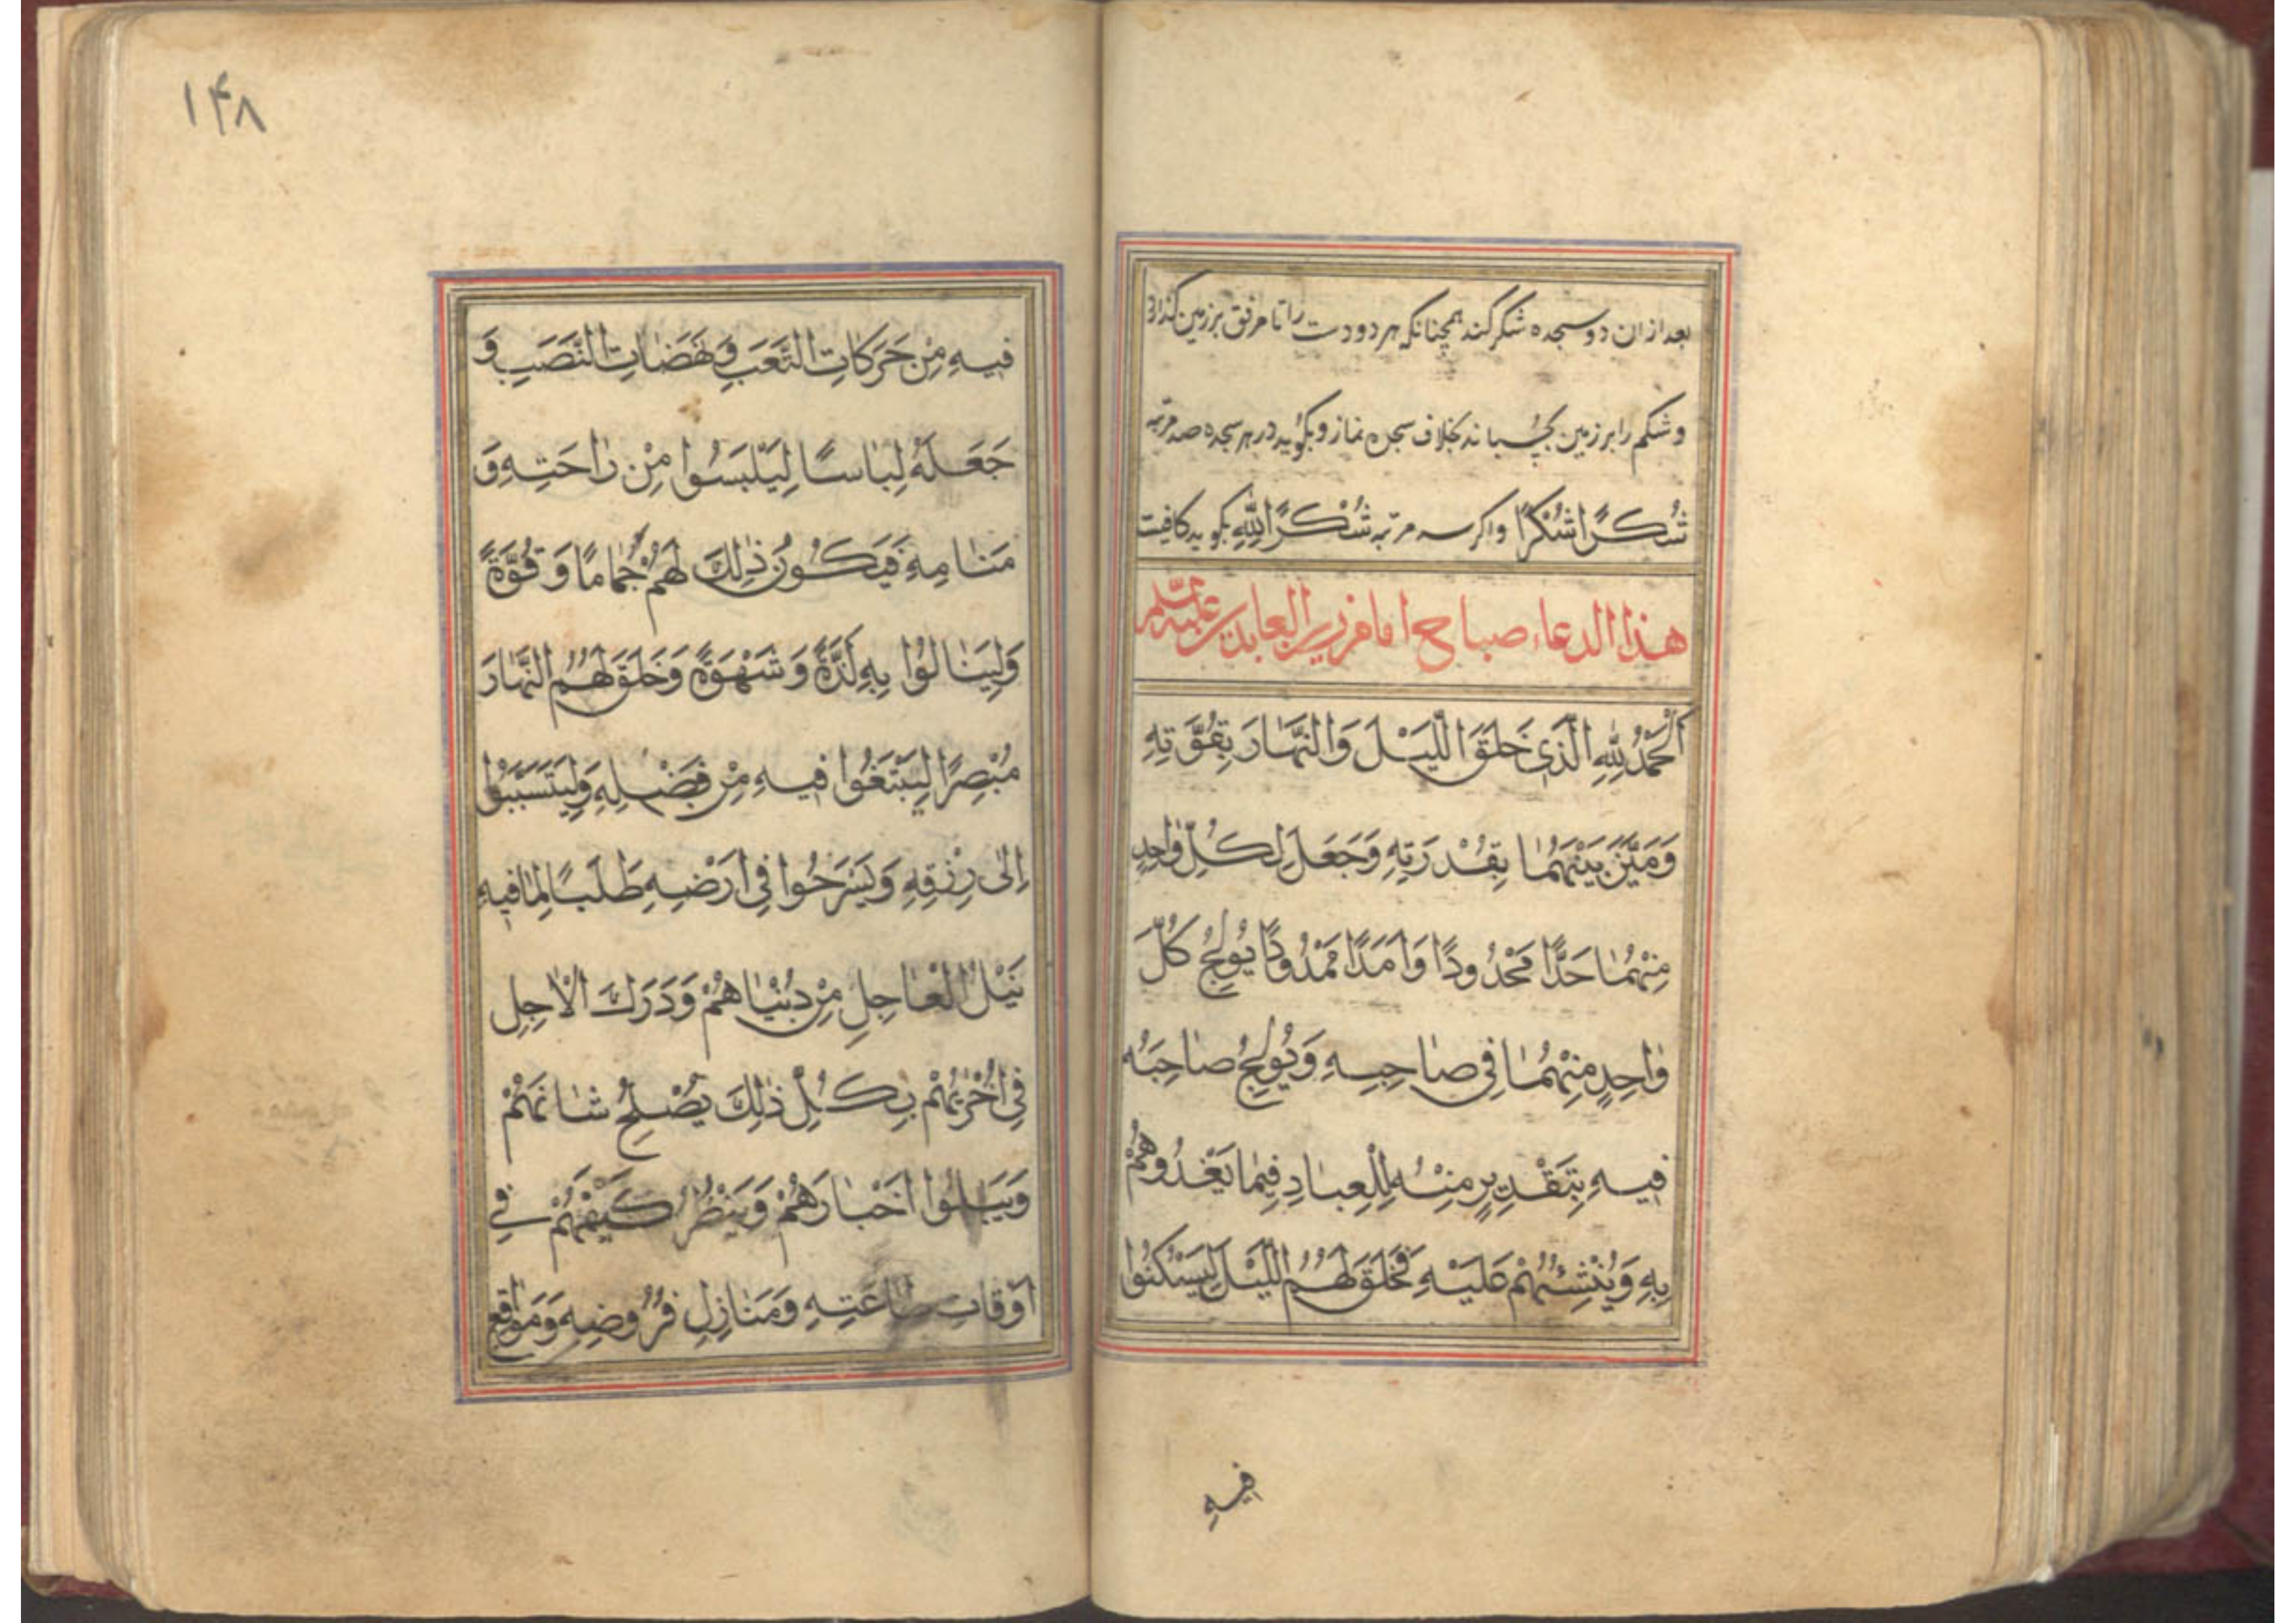 بعد ازان دو سجده شکر کند همچنانکه هر دو دست را تا مرفق بر زمین گذارد
و شکم را بر زمین بچسباند بخلاف سجده نماز و بگوید در هر سجده صد مرتبه
شُكْرًا شُكْرًا و اکر سه مرتبه شُكْرًا لِلّٰهِ بگوید کافیست
هذا الدعاء صباح امام زین العابدین علیه السلم
اَلْحَمْدُ لِلّٰهِ الَّذِى خَلَقَ اللَّيْلَ وَالنَّهَارَ بِقُوَّتِهِ
وَمَيَّزَ بَيْنَهُمَا بِقُدْرَتِهِ وَجَعَلَ لِكُلِّ وٰاحِدٍ
مِنْهُمٰا حَدًّا مَحْدُودًا وَاَمَدًا مَمْدُودًا يُولِجُ كُلَّ
وٰاحِدٍ مِنْهُمٰا فِى صٰاحِبِهِ وَيُولِجُ صٰاحِبَهُ
فِيهِ بِتَقْدِيرٍ مِنْهُ لِلْعِبٰادِ فِيمٰا يَغْذُوهُمْ
بِهِ وَيُنْشِئُهُمْ عَلَيْهِ فَخَلَقَ لَهُمُ اللَّيْلَ لِيَسْكُنُوا
فیه
۱۴۸
فِيهِ مِنْ حَرَكَاتِ التَّعَبِ وَنَهَضٰاتِ النَّصَبِ وَ
جَعَلَهُ لِبٰاسًا لِيَلْبَسُوا مِنْ رٰاحَتِهِ وَ
مَنٰامِهِ فَيَكُونُ ذٰلِكَ لَهُمْ جُمٰامًا وَقُوَّةً
وَلِيَنٰالُوا بِهِ لَذَّةً وَشَهْوَةً وَخَلَقَ لَهُمُ النَّهٰارَ
مُبْصِرًا لِيَبْتَغُوا فِيهِ مِنْ فَضْلِهِ وَلِيَتَسَبَّبُوا
اِلٰى رِزْقِهِ وَيَسْرَحُوا فِى اَرْضِهِ طَلَبًا لِمٰا فِيهِ
نَيْلُ الْعٰاجِلِ مِنْ دُنْيٰاهُمْ وَدَرَكُ الْاٰجِلِ
فِى اُخْرٰيهُمْ بِكُلِّ ذٰلِكَ يُصْلِحُ شٰانَهُمْ
وَيَبْلُوا اَخْبٰارَهُمْ وَيَنْظُرُ كَيْفَ هُمْ فِى
اَوْقٰاتِ طٰاعَتِهِ وَمَنٰازِلِ فُرُوضِهِ وَمَوٰاقِعِ